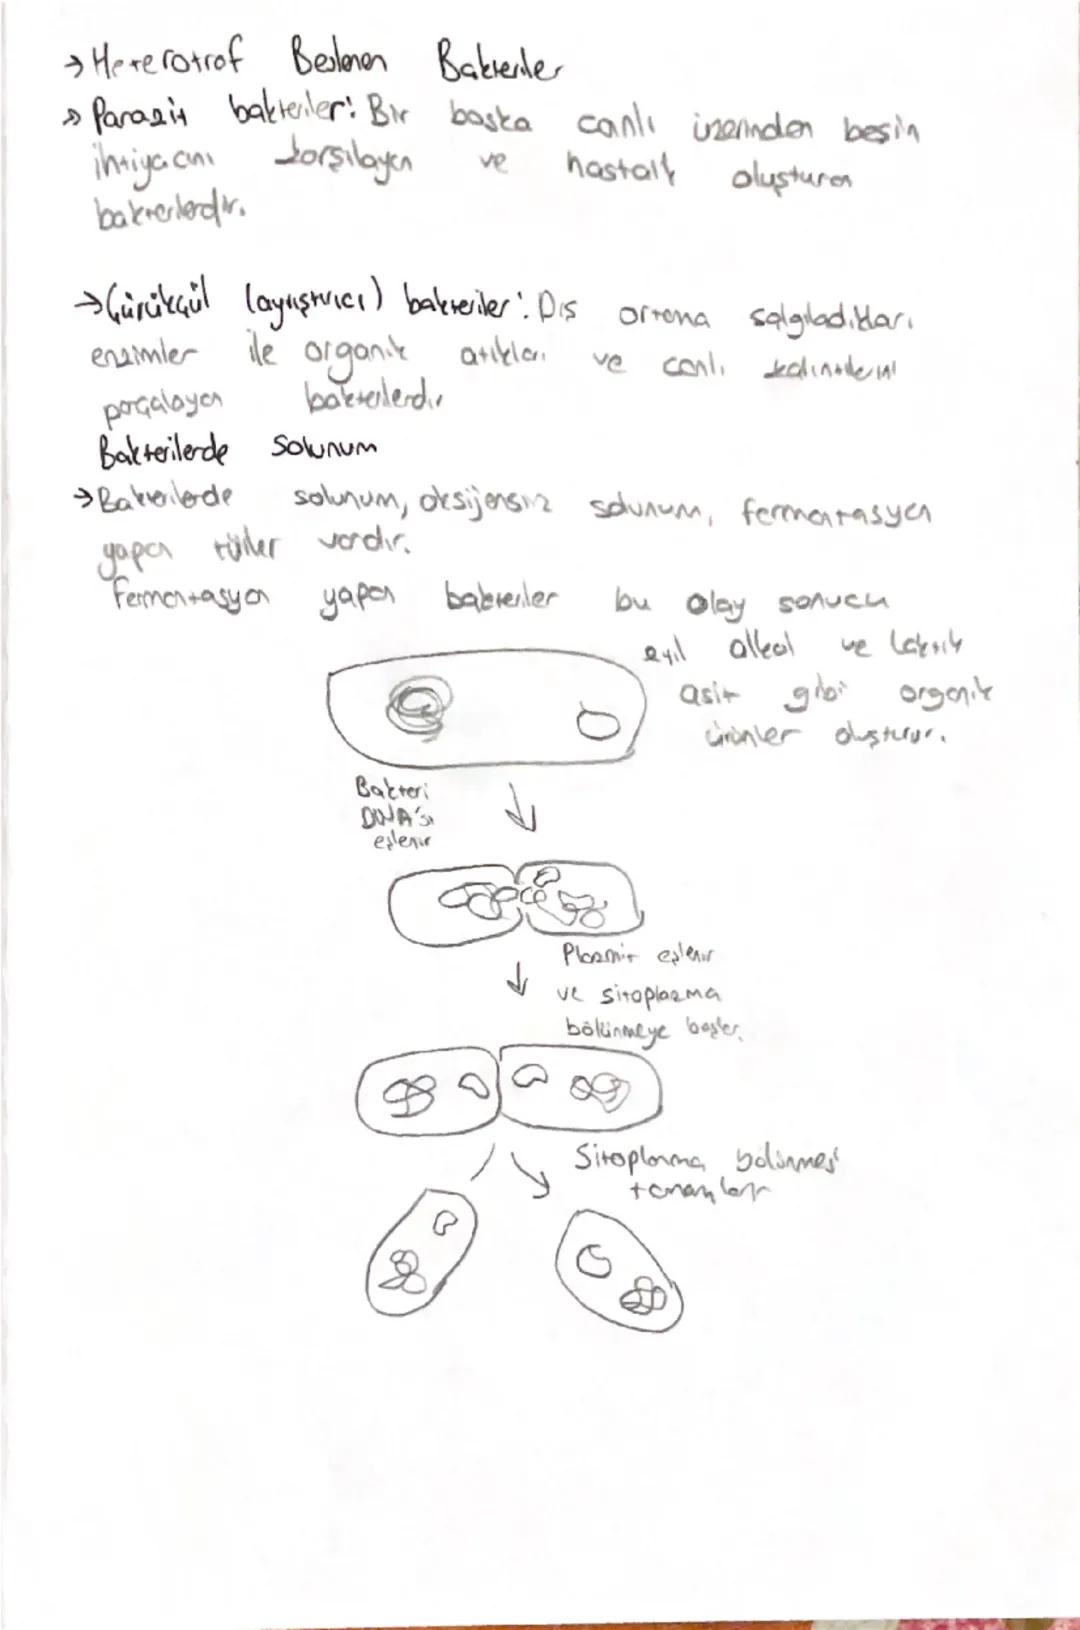 → Heterotrof Beslenen Bakteriler
» Parazit bakteriler: Bir başka canlı üzerinden besin
ihtiyacını karşılayan ve hastalık oluşturan
bakterilerdir.
→ Çürükçül (ayrıştırıcı) bakteriler: Dış ortama salgıladıkları
enzimler ile organik atıkları ve canlı kalıntılarını
parçalayan bakterilerdir
Bakterilerde Solunum
→ Bakterilerde solunum, oksijensiz solunum, fermantasyon
yapan türler vardır.
Fermantasyon yapan bakteriler bu olay sonucu
etil alkol ve laktik
asit gibi organik
ürünler oluşturur.
Bakteri
DNA'sı
eşlenir
Plazmit eşlenir
ve sitoplazma
bölünmeye başlar.
Sitoplazma bölünmesi
tamamlanır